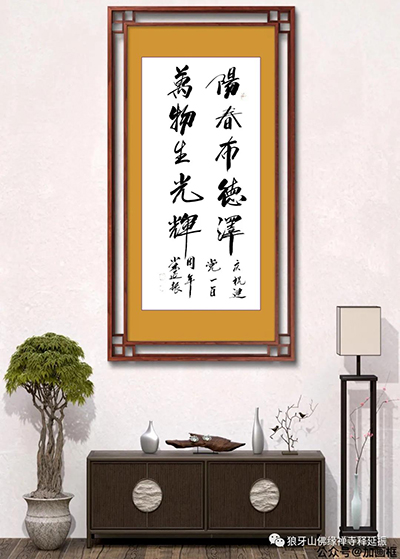 陽春布德澤
庆祝建
党一百
萬物生光輝
周年
延振
狼牙山佛缘禅寺释延振
公众号@加画框